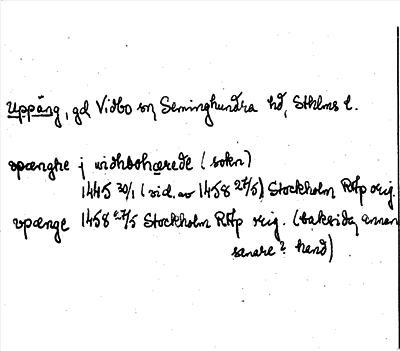 Uppäng, gd Vidbo sn Seminghundra hd, Sthlms l.
vpænghe j widhbohærede (sokn)
1445 30/1 (vid. av 1458 27/5) Stockholm RAp orig.
vpænge 1458 27/5 Stockholm RAp orig. (baksida, annan
senare? hand)